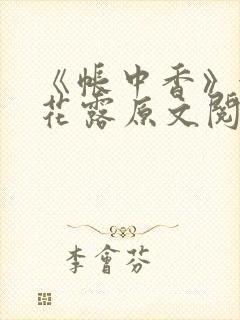 《帐中香》
花露原文阅
李會芬